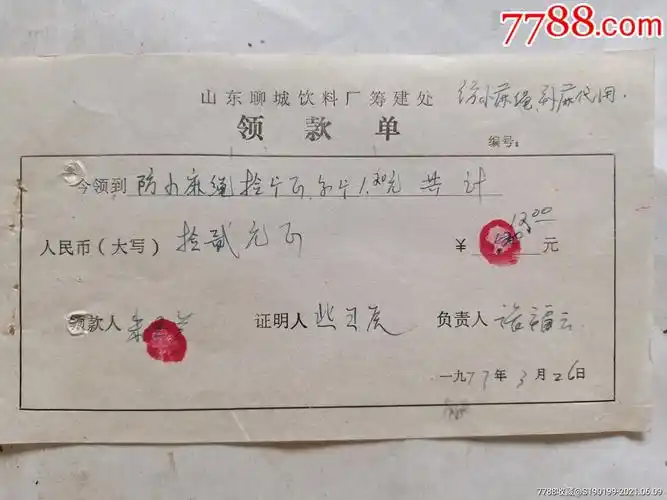 7788.com
山东聊城饮料厂筹建处
纺小麻绳
领款单
编号：
今领到 防小麻绳拾斤正，每斤1.20元 共计
人民币（大写） 拾贰元正 ￥ 12.00 元
领款人 朱 证明人 负责人 福云
一九77年3月26日
7788收藏@S199199-2021.06.09